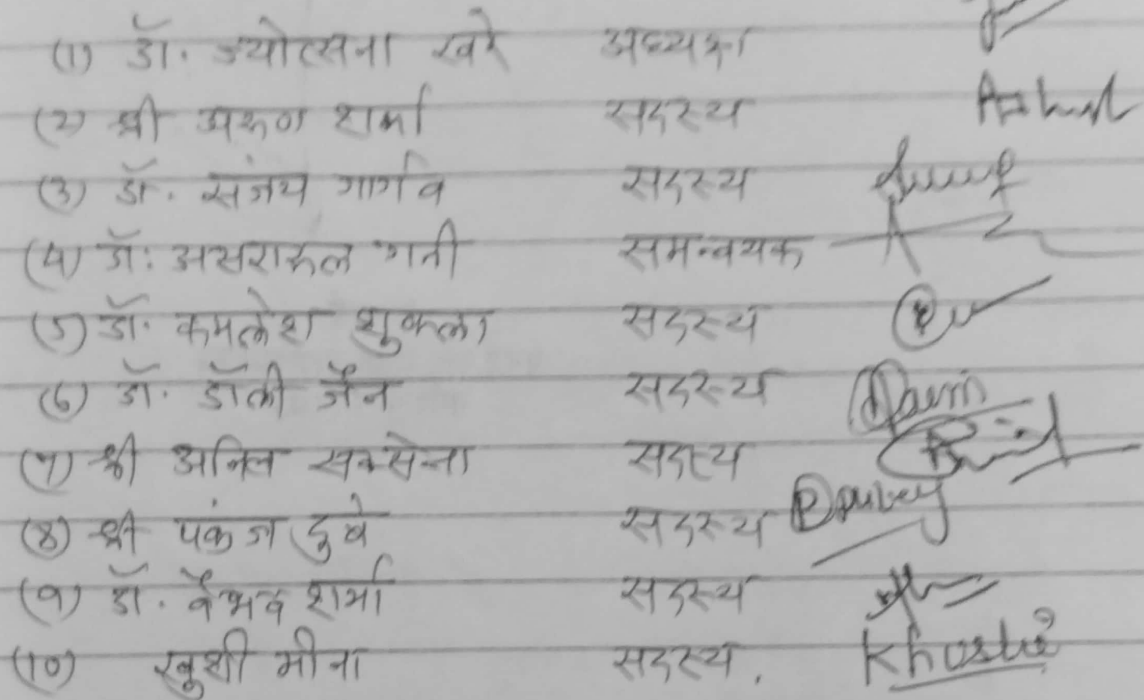 (1) डॉ. ज्योत्सना खरे अध्यक्ष
(2) श्री अरुण शर्मा सदस्य
(3) डॉ. संजय गार्गव सदस्य
(4) डॉ. असराकल गनी समन्वयक
(5) डॉ. कमलेश शुक्ला सदस्य
(6) डॉ. डॉली जैन सदस्य
(7) श्री अनिल सक्सेना सदस्य
(8) श्री पंकज दुबे सदस्य Dubey
(9) डॉ. वैभव शर्मा सदस्य
(10) खुशी मीना सदस्य. Khushi